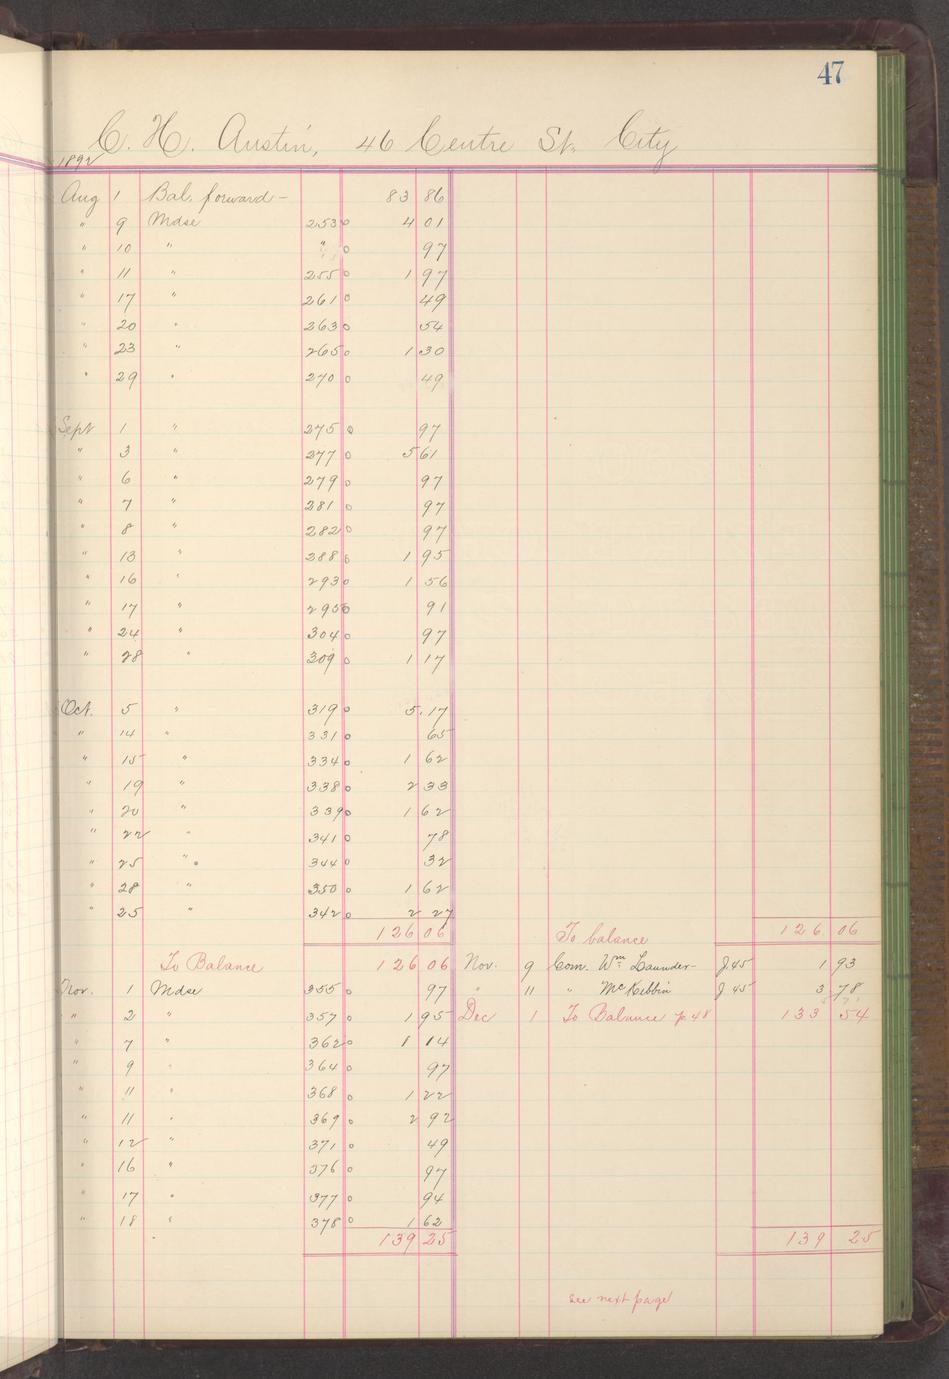 47
C. H. Austin, 46 Centre St. City
1892
Aug 1 Bal. forward - 83 86
" 9 Mdse 253 o 4 01
" 10 " " o 97
" 11 " 255 o 1 97
" 17 " 261 o 49
" 20 " 263 o 54
" 23 " 265 o 1 30
" 29 " 270 o 49
Sept 1 " 275 o 97
" 3 " 277 o 5 61
" 6 " 279 o 97
" 7 " 281 o 97
" 8 " 282 o 97
" 13 " 288 o 1 95
" 16 " 293 o 1 56
" 17 " 295 o 91
" 24 " 304 o 97
" 28 " 309 o 1 17
Oct. 5 " 319 o 5.17
" 14 " 331 o 65
" 15 " 334 o 1 62
" 19 " 338 o 2 33
" 20 " 339 o 1 62
" 22 " 341 o 78
" 25 " 344 o 32
" 28 " 350 o 1 62
" 25 " 342 o 2 27
126 06 To balance 126 06
To Balance 126 06 Nov. 9 Com. Wm Launder- J. 45 1 93
Nov. 1 Mdse 355 o 97 " 11 " McKibbin J 45 3 78
" 2 " 357 o 1 95 Dec 1 To Balance p 48 133 54
" 7 " 362 o 1 14
" 9 " 364 o 97
" 11 " 368 o 1 22
" 11 " 369 o 2 92
" 12 " 371 o 49
" 16 " 376 o 97
" 17 " 377 o 94
" 18 " 378 o 1 62
139 25 139 25
see next page